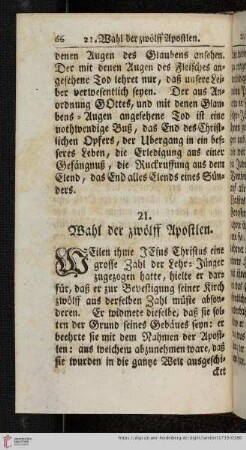 66 21. Wahl der zwölff Apostlen.
denen Augen des Glaubens ansehen.
Der mit denen Augen des Fleisches an-
gesehene Tod lehret nur, daß unsere Lei-
ber verwesentlich seyen. Der aus An-
ordnung GOttes, und mit denen Glau-
bens-Augen angesehene Tod ist eine
nothwendige Buß, das End des Christ-
lichen Opfers, der Übergang in ein bes-
seres Leben, die Erledigung aus einer
Gefängnuß, die Zuckruffung aus dem
Elend, das End alles Elends eines Sün-
ders.
21.
Wahl der zwölff Apostlen.
WEilen ihme JEsus Christus eine
grosse Zahl der Lehr-Jünger
zugezogen hatte, hielte er dar-
für, daß er zur Bevestigung seiner Kirch
zwölff aus derselben Zahl müste abson-
deren. Er widmete dieselbe, daß sie sol-
ten der Grund seines Gebäues seyn: er
beehrte sie mit dem Nahmen der Apost-
len: aus welchem abzunehmen ware, daß
sie wurden in die gantze Welt ausgeschi-
cket